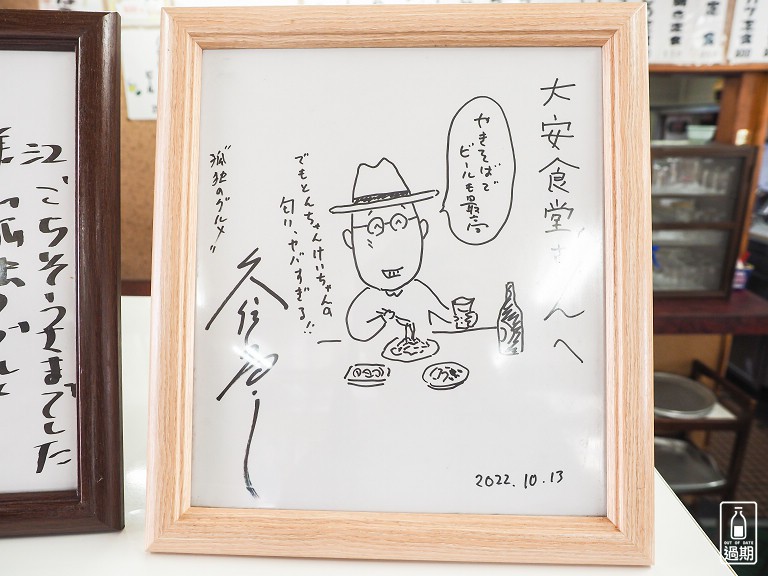 大安食堂さんへ
やきそばで
ビールも最高
でもとんちゃんけいちゃんの
匂い、ヤバすぎる!!
"孤独のグルメ"
久住昌之
2022.10.13
江
ごちそうさまでした
定食
OUT OF DATE
過期